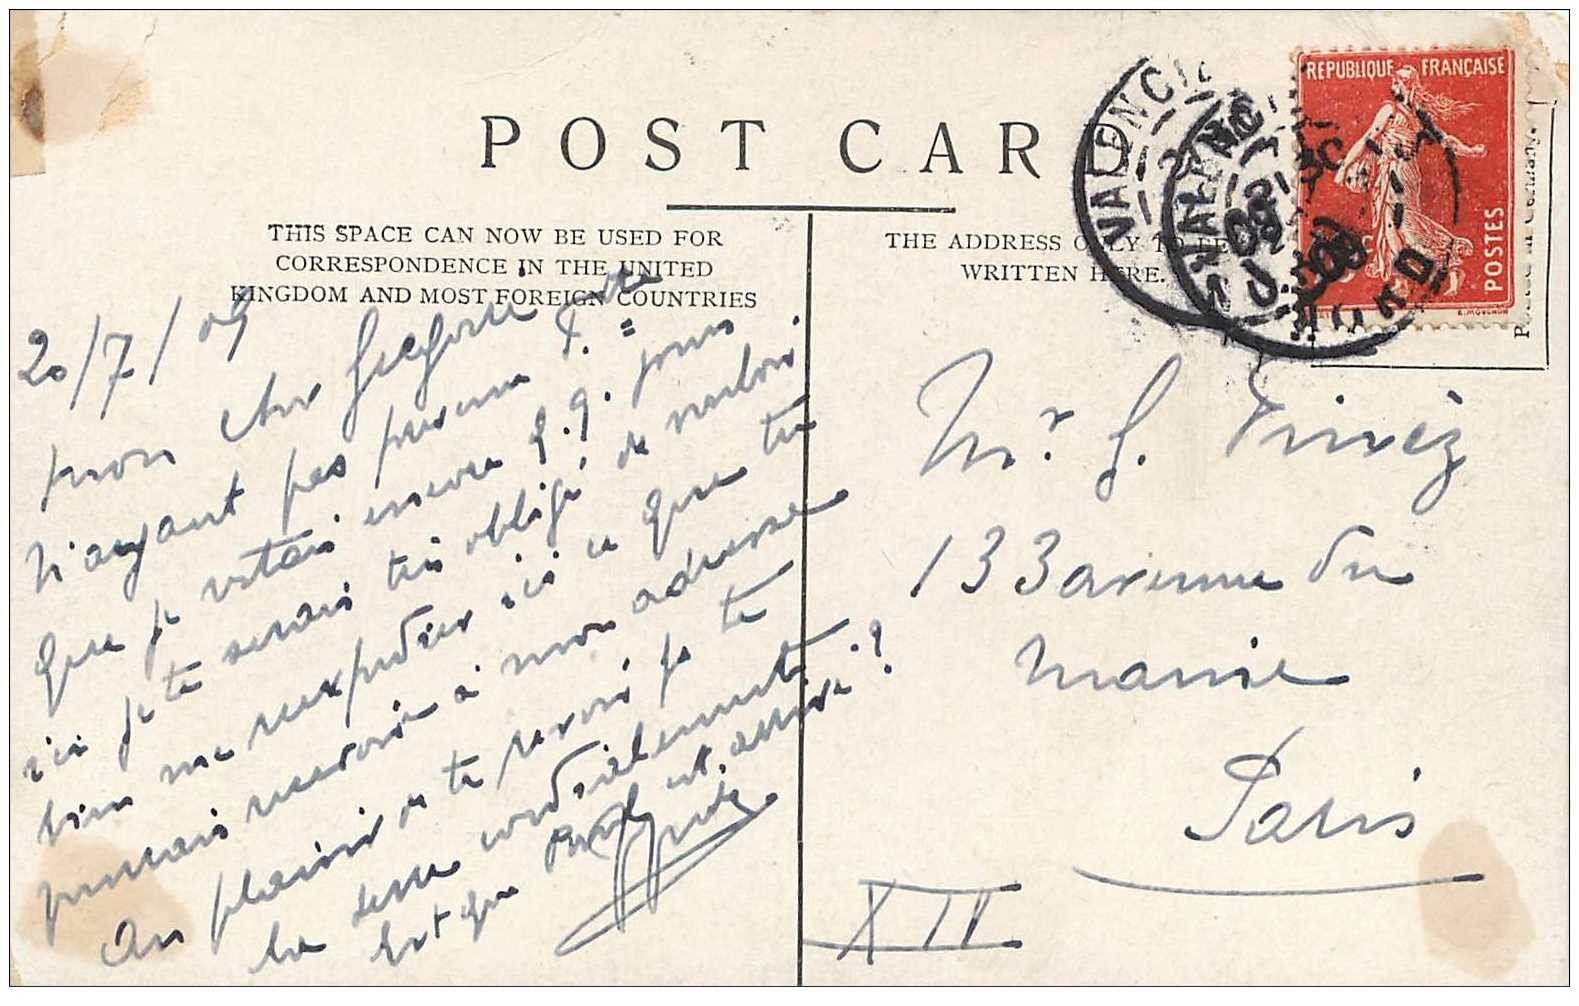 POST CARD
THIS SPACE CAN NOW BE USED FOR
CORRESPONDENCE IN THE UNITED
KINGDOM AND MOST FOREIGN COUNTRIES
THE ADDRESS ONLY TO BE
WRITTEN HERE.
REPUBLIQUE FRANÇAISE
POSTES
VALENCI
VALENCI
NORD
20/7/09
Mon cher
N'ayant pas prévenu
que je restais encore q.q. jours
ici je te serais très obligé de vouloir
bien me réexpédier ici ce que tu
pourrais recevoir à mon adresse
Au plaisir de te revoir je te
la serre cordialement
Est que Paul est arrivé?
Mr. G. Vinéz
133 avenue du
Maine
Paris
XIV